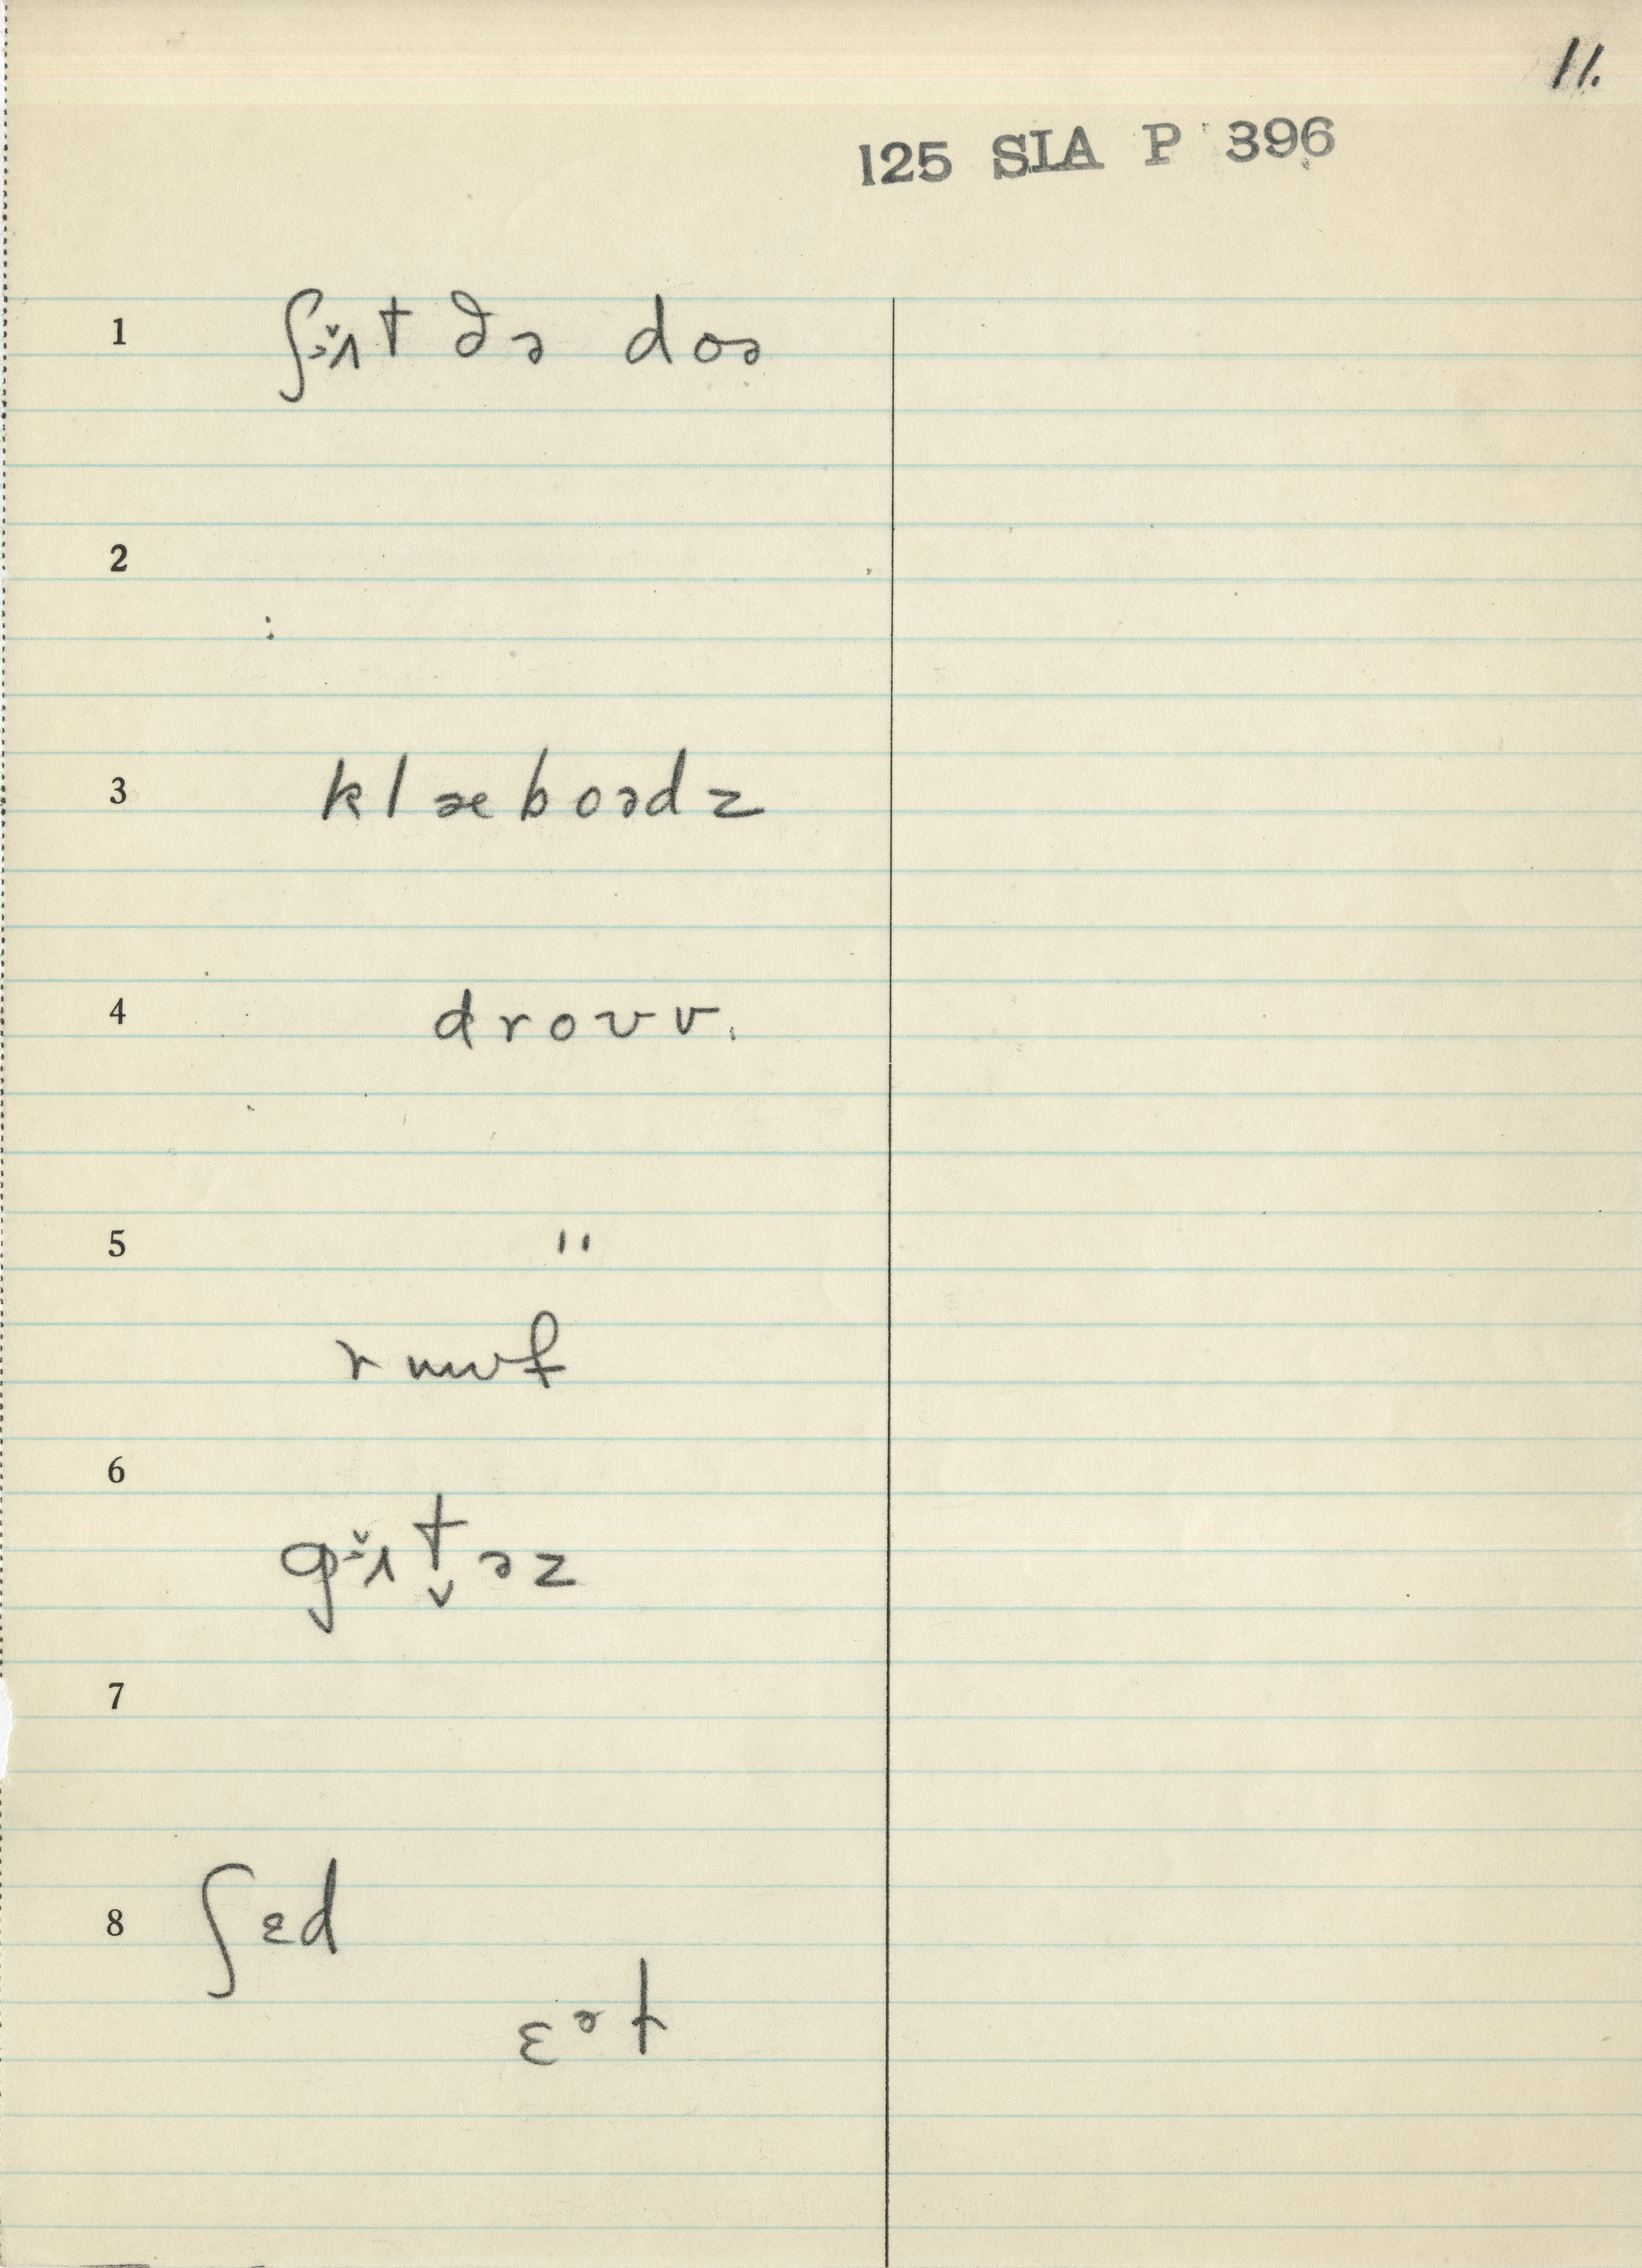 11.
125 SIA P 396
1 ʃɨ̌ʌt ðə doə
2
3 klæboədz
4 droʊv.
5 "
ruuf
6
gɨ̌ʌt̬əz
7
8 ʃɛd
ɛət